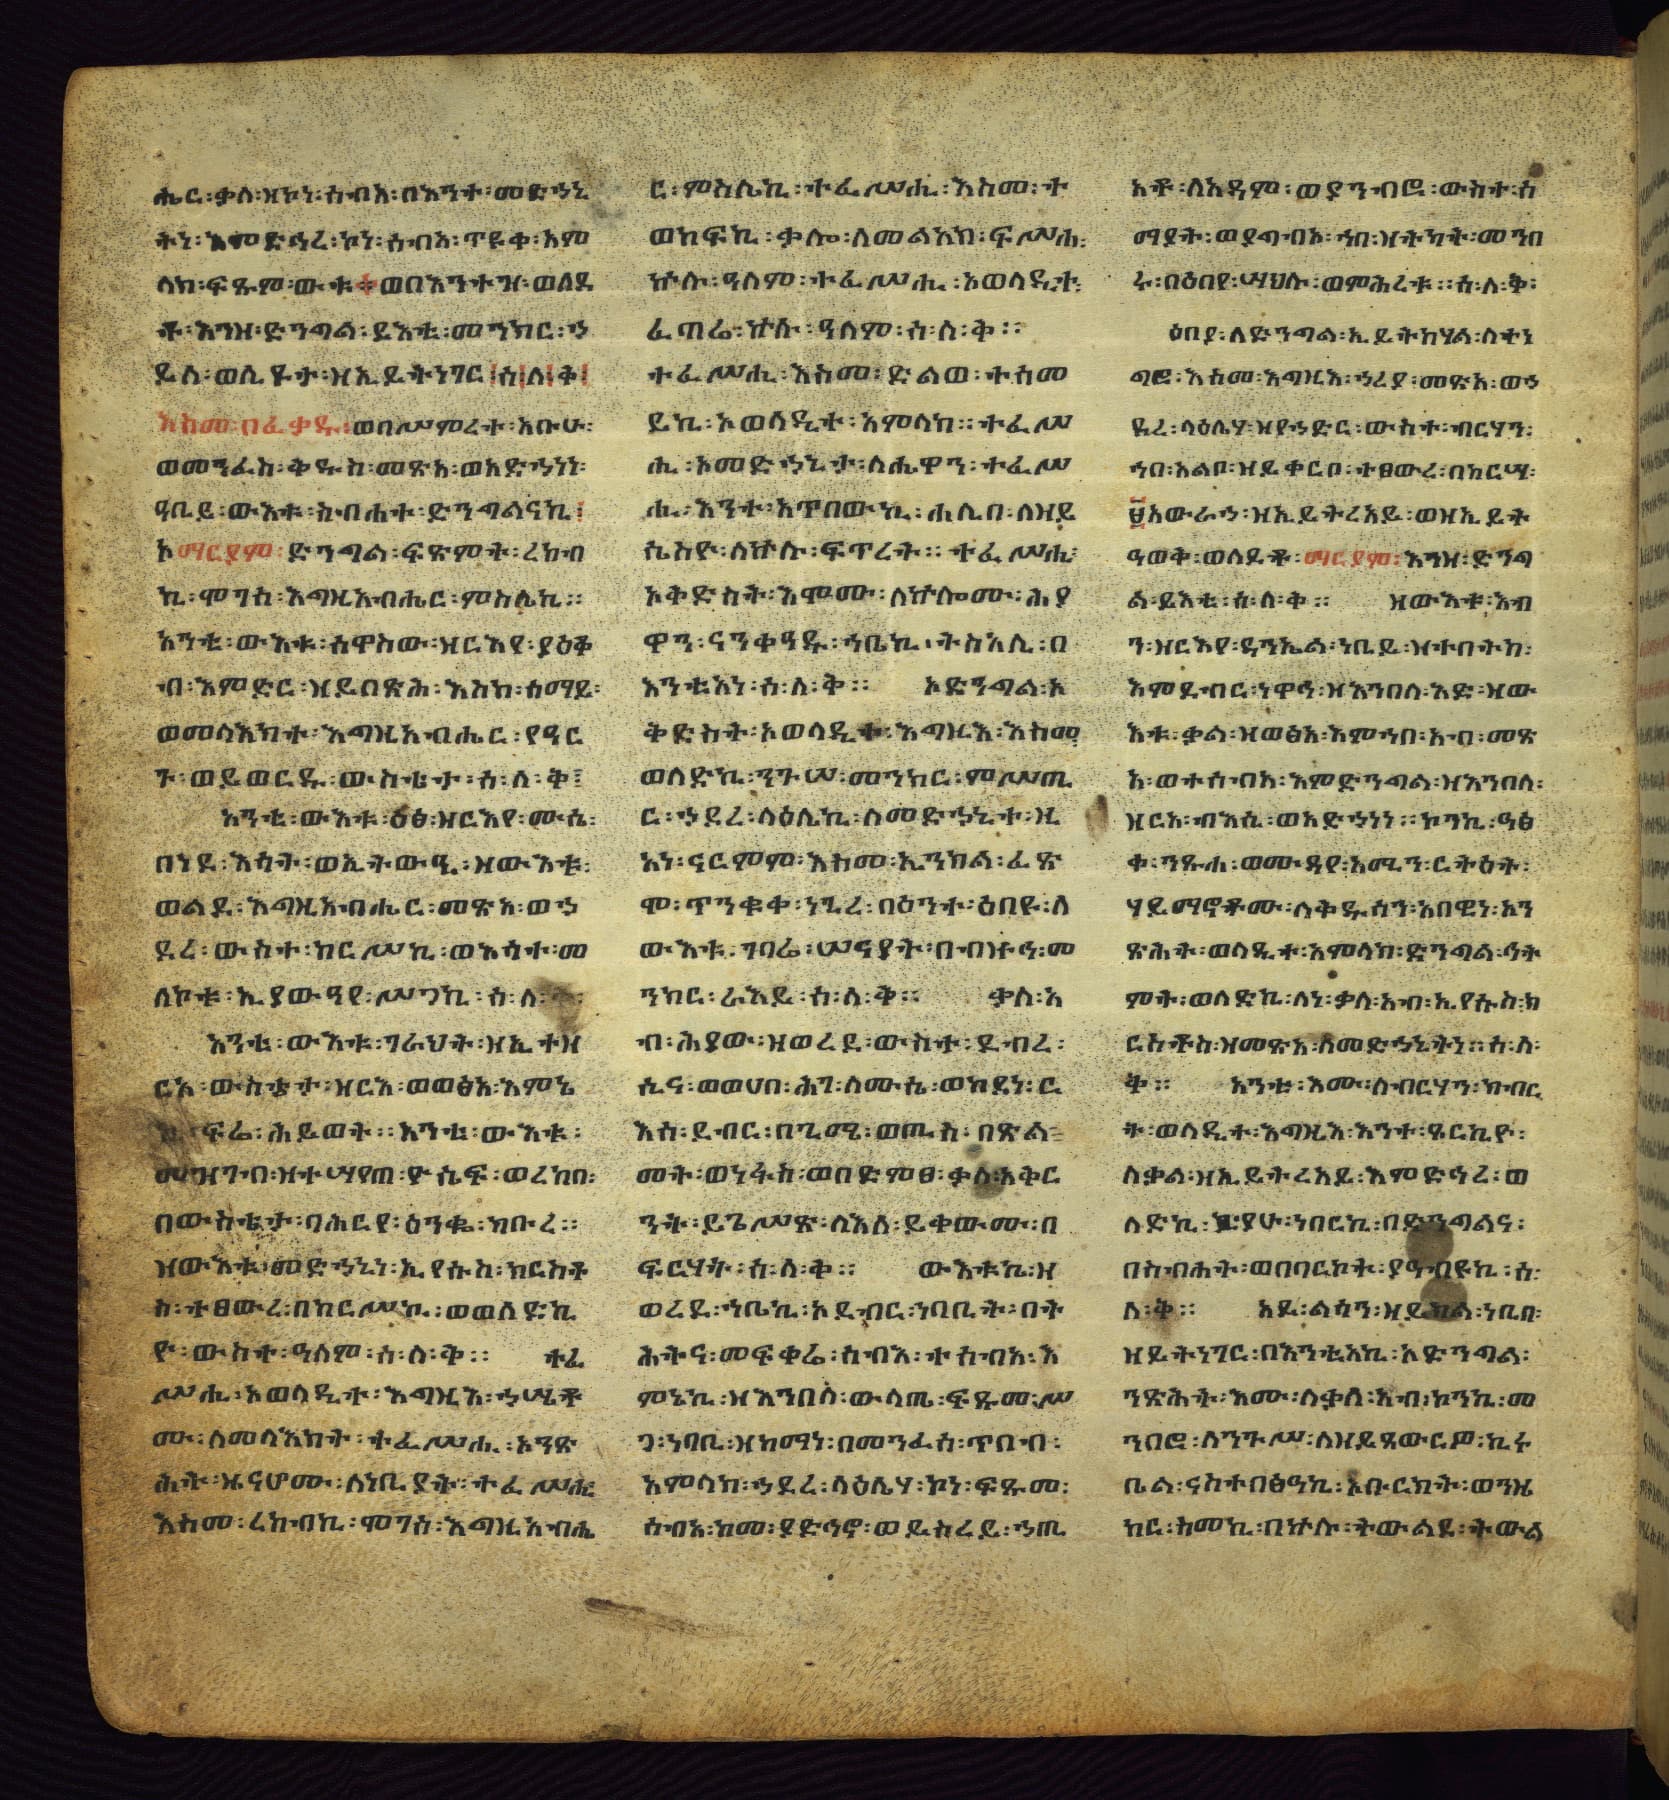 ሔር፡ቃለ፡ዝኮነ፡ሰብአ፡በእንተ፡መድኀኒ
ትነ፡እምድኅረ፡ኮነ፡ሰብአ፡ጥዩቀ፡አም
ላክ፡ፍጹም፡ውእቱ፨ወበእንተዝ፡ወለደ
ቶ፡እንዘ፡ድንግል፡ይእቲ፡መንክር፡ኀ
ይለ፡ወሊዶታ፡ዘኢይትነገር፡ሰ፡ለ፡ቅ፡
እስመ፡በፈቃዱ፡ወበሥምረተ፡አቡሁ፡
ወመንፈስ፡ቅዱስ፡መጽአ፡ወአድኀነነ፡
ዓቢይ፡ውእቱ፡ስብሐተ፡ድንግልናኪ፡
ኦማርያም፡ድንግል፡ፍጽምት፡ረከብ
ኪ፡ሞገሰ፡እግዚአብሔር፡ምስሌኪ።
አንቲ፡ውእቱ፡ሰዋስው፡ዘርእየ፡ያዕቆ
ብ፡እምድር፡ዘይበጽሕ፡እስከ፡ሰማይ፡
ወመላእክተ፡እግዚአብሔር፡የዓር
ጉ፡ወይወርዱ፡ውስቴታ፡ሰ፡ለ፡ቅ፡
አንቲ፡ውእቱ፡ዕፅ፡ዘርእየ፡ሙሴ፡
በነደ፡እሳት፡ወኢትውዒ፡ዝውእቱ፡
ወልደ፡እግዚአብሔር፡መጽአ፡ወኀ
ደረ፡ውስተ፡ከርሥኪ፡ወእሳተ፡መ
ለኮቱ፡ኢያውዓየ፡ሥጋኪ፡ሰ፡ለ፡
አንቲ፡ውእቱ፡ገራህት፡ዘኢተዘ
ርአ፡ውስቴታ፡ዘርአ፡ወወፅአ፡እምኔ
ፍሬ፡ሕይወት።አንቲ፡ውእቱ፡
መዝገብ፡ዘተሣየጠ፡ዮሴፍ፡ወረከበ፡
በውስቴታ፡ባሕርየ፡ዕንቈ፡ክቡረ።
ዝውእቱ፡መድኀኒነ፡ኢየሱስ፡ክርስቶ
ስ፡ተፀውረ፡በከርሥኪ፡ወወለድኪ
ዮ፡ውስተ፡ዓለም፡ሰ፡ለ፡ቅ። ተፈ
ሥሒ፡ኦወላዲተ፡እግዚእ፡ኀሤቶ
ሙ፡ለመላእክት፡ተፈሥሒ፡አንጽ
ሕት፡ዜናሆሙ፡ለነቢያት፡ተፈሥሒ፡
እስመ፡ረከብኪ፡ሞገሰ፡እግዚአብሔ
ር፡ምስሌኪ፡ተፈሥሒ፡እስመ፡ተ
ወከፍኪ፡ቃሎ፡ለመልአክ፡ፍሥሐ፡
ኵሉ፡ዓለም፡ተፈሥሒ፡ኦወላዲተ፡
ፈጣሬ፡ኵሉ፡ዓለም፡ሰ፡ለ፡ቅ።
ተፈሥሒ፡እስመ፡ድልወ፡ተሰመ
ይኪ፡ኦወላዲተ፡አምላክ።ተፈሥ
ሒ፡ኦመድኀኒታ፡ለሔዋን፡ተፈሥ
ሒ፡እንተ፡አጥበውኪ፡ሐሊበ፡ለዘይ
ሴስዮ፡ለኵሉ፡ፍጥረት።ተፈሥሒ፡
ኦቅድስት፡እሞሙ፡ለኵሎሙ፡ሕያ
ዋን፡ናንቀዓዱ፡ኀቤኪ፡ትስአሊ፡በ
እንቲአነ፡ሰ፡ለ፡ቅ። ኦድንግል፡ኦ
ቅድስት፡ኦወላዲተ፡እግዚእ፡እስመ
ወለድኪ፡ንጉሠ፡መንክር፡ምሥጢ
ር፡ኀደረ፡ላዕሌኪ፡ለመድኀኒተ፡ዚ
አነ፡ናርምም፡እስመ፡ኢንክል፡ፈጽ
ሞ፡ጥንቁቀ፡ነጊረ፡በዕንተ፡ዕበዩ፡ለ
ውእቱ፡ገባሬ፡ሠናያት፡በብዙኅ፡መ
ንክር፡ራእይ፡ሰ፡ለ፡ቅ። ቃለ፡አ
ብ፡ሕያው፡ዘወረደ፡ውስተ፡ደብረ፡
ሲና፡ወወሀበ፡ሕገ፡ለሙሴ፡ወከደነ፡ር
እሰ፡ደብር፡በጊሜ፡ወጢስ፡በጽል
መት፡ወነፋስ፡ወበድምፀ፡ቃለ፡አቅር
ንት፡ይጌሥጽ፡ለእለ፡ይቀውሙ፡በ
ፍርሃት፡ሰ፡ለ፡ቅ። ውእቱኬ፡ዘ
ወረደ፡ኀቤኪ፡ኦደብር፡ነባቢት፡በት
ሕትና፡መፍቀሬ፡ሰብእ፡ተሰብአ፡እ
ምኔኪ፡ዘእንበለ፡ውላጤ፡ፍጹመ፡ሥ
ጋ፡ነባቢ፡ዘከማነ፡በመንፈሰ፡ጥበብ፡
አምላክ፡ኀደረ፡ላዕሌሃ፡ኮነ፡ፍጹመ፡
ሰብአ፡ከመ፡ያድኅኖ፡ወይስረይ፡ኀጢ
አቶ፡ለአዳም፡ወያንብሮ፡ውስተ፡ሰ
ማያት፡ወያግብአ፡ኀበ፡ዘትካት፡መንበ
ሩ፡በዕበየ፡ሣህሉ፡ወምሕረቱ።ሰ፡ለ፡ቅ፡
ዕበያ፡ለድንግል፡ኢይትከሃል፡ለተነ
ግሮ፡እስመ፡እግዚእ፡ኀረያ፡መጽአ፡ወኀ
ደረ፡ላዕሌሃ፡ዘየኀድር፡ውስተ፡ብርሃን፡
ኀበ፡አልቦ፡ዘይቀርቦ፡ተፀውረ፡በከርሣ፡
፱አውራኀ፡ዘኢይትረአይ፡ወዘኢይት
ዓወቅ፡ወለደቶ፡ማርያም፡እንዘ፡ድንግ
ል፡ይእቲ፡ሰ፡ለ፡ቅ። ዝውእቱ፡እብ
ን፡ዘርእየ፡ዳንኤል፡ነቢይ፡ዘተበትከ፡
እምደብር፡ነዋኅ፡ዘእንበለ፡እድ፡ዝው
እቱ፡ቃል፡ዘወፅአ፡እምኀበ፡አብ፡መጽ
አ፡ወተሰብአ፡እምድንግል፡ዘእንበለ፡
ዘርአ፡ብእሲ፡ወአድኀነነ።ኮንኪ፡ዓፅ
ቀ፡ንጹሐ፡ወሙዳየ፡አሚን፡ርትዕት፡
ሃይማኖቶሙ፡ለቅዱሳን፡አበዊነ፡አን
ጽሕት፡ወላዲተ፡አምላክ፡ድንግል፡ኅት
ምት፡ወለድኪ፡ለነ፡ቃለ፡አብ፡ኢየሱስ፡ክ
ርስቶስ፡ዘመጽአ፡ለመድኀኒትነ።ሰ፡ለ፡
ቅ። አንቲ፡እሙ፡ለብርሃን፡ክብር
ት፡ወላዲተ፡እግዚእ፡እንተ፡ፆርኪዮ፡
ለቃል፡ዘኢይትረአይ፡እምድኅረ፡ወ
ለድኪ፡ኪያሁ፡ነበርኪ፡በድንግልና፡
በስብሐት፡ወበባርኮት፡ያዓብዩኪ፡ሰ፡
ለ፡ቅ። አይ፡ልሳን፡ዘይክል፡ነቢበ፡
ዘይትነገር፡በእንቲአኪ፡ኦድንግል፡
ንጽሕት፡እሙ፡ለቃለ፡አብ፡ኮንኪ፡መ
ንበሮ፡ለንጉሥ፡ለዘይጸውርዎ፡ኪሩ
ቤል፡ናስተበፅዓኪ፡ኦቡርክት፡ወንዜ
ከር፡ስመኪ፡በኵሉ፡ትውልደ፡ትውል